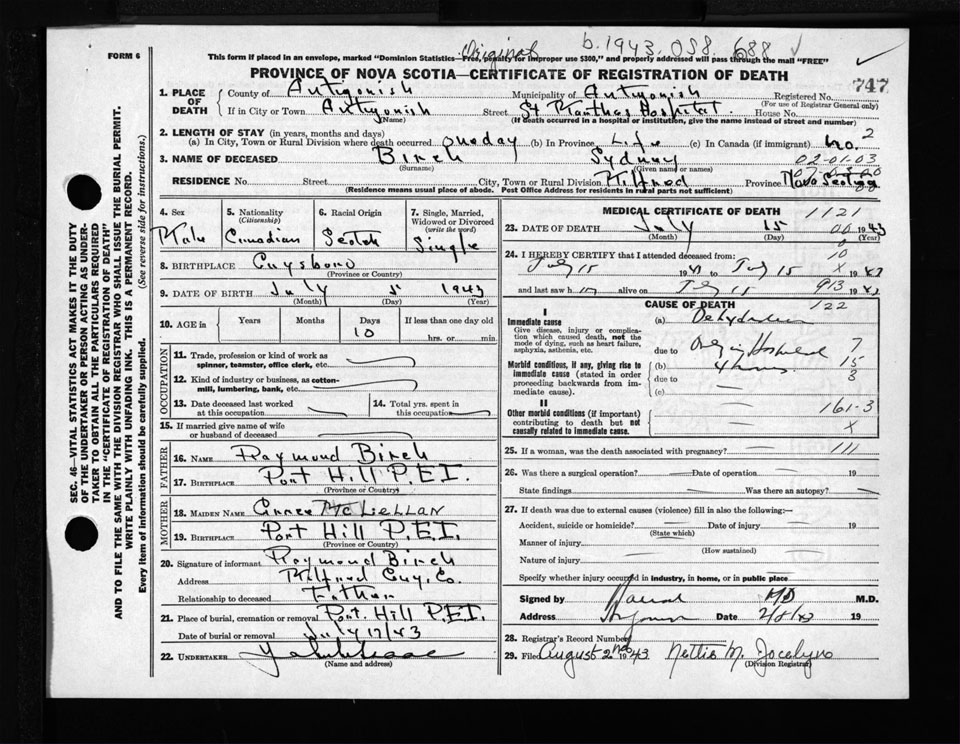 Original b.1943.058.688
FORM 6 This form if placed in an envelope, marked "Dominion Statistics—Free, penalty for improper use $300," and properly addressed will pass through the mail "FREE"
PROVINCE OF NOVA SCOTIA—CERTIFICATE OF REGISTRATION OF DEATH
747
1. PLACE OF DEATH County of Antigonish Municipality of Antigonish Registered No.
(For use of Registrar General only)
If in City or Town Antigonish Street St Marthas Hospital House No.
(Name) (If death occurred in a hospital or institution, give the name instead of street and number)
2. LENGTH OF STAY (in years, months and days) 2
(a) In City, Town or Rural Division where death occurred one day (b) In Province Life (c) In Canada (if immigrant) no.
3. NAME OF DECEASED Birch Sydney 02-01-03
(Surname) (Given name or names)
RESIDENCE No. Street City, Town or Rural Division Milford Province Nova Scotia
(Residence means usual place of abode. Post Office Address for residents in rural parts not sufficient)
4. Sex Male
5. Nationality (Citizenship) Canadian
6. Racial Origin Scotch
7. Single, Married, Widowed or Divorced (write the word) Single
8. BIRTHPLACE Guysboro
(Province or Country)
9. DATE OF BIRTH July 5 1943
(Month) (Day) (Year)
10. AGE in Years Months Days 10 If less than one day old
hrs. or min.
OCCUPATION
11. Trade, profession or kind of work as spinner, teamster, office clerk, etc.
12. Kind of industry or business, as cotton-mill, lumbering, bank, etc.
13. Date deceased last worked at this occupation
14. Total yrs. spent in this occupation
15. If married give name of wife or husband of deceased
FATHER
16. NAME Raymond Birch
17. BIRTHPLACE Port Hill P.E.I.
(Province or Country)
MOTHER
18. MAIDEN NAME Annee McLellan
19. BIRTHPLACE Port Hill P.E.I.
(Province or Country)
20. Signature of informant Raymond Birch
Address Milford Guy. Co.
Relationship to deceased Father
21. Place of burial, cremation or removal Port Hill P.E.I.
Date of burial or removal July 17/43
22. UNDERTAKER
(Name and address)
MEDICAL CERTIFICATE OF DEATH 1121
23. DATE OF DEATH July 15 1943
(Month) (Day) (Year)
24. I HEREBY CERTIFY that I attended deceased from: 10
July 15 1943 to July 15 1943
and last saw h im alive on July 15 913 1943
CAUSE OF DEATH 122
I
Immediate cause (a) Dehydration
Give disease, injury or complication which caused death, not the mode of dying, such as heart failure, asphyxia, asthenia, etc.
due to 7
Morbid conditions, if any, giving rise to immediate cause (stated in order proceeding backwards from immediate cause).
(b) 4 hours 15
due to 8
(c)
II
Other morbid conditions (if important) contributing to death but not causally related to immediate cause. 161-3
X
25. If a woman, was the death associated with pregnancy? 111
26. Was there a surgical operation? Date of operation 19
State findings Was there an autopsy?
27. If death was due to external causes (violence) fill in also the following:
Accident, suicide or homicide? Date of injury 19
(State which)
Manner of injury
(How sustained)
Nature of injury
Specify whether injury occurred in industry, in home, or in public place
Signed by MD M.D.
Address Date 2/8/43 19
28. Registrar's Record Number
29. Filed August 2nd 1943 Nettie M. Jocelyn
(Division Registrar)
SEC. 46—VITAL STATISTICS ACT MAKES IT THE DUTY
OF THE UNDERTAKER OR PERSON ACTING AS UNDER-
TAKER TO OBTAIN ALL THE PARTICULARS REQUIRED
IN THE "CERTIFICATE OF REGISTRATION OF DEATH"
AND TO FILE THE SAME WITH THE DIVISION REGISTRAR WHO SHALL ISSUE THE BURIAL PERMIT.
WRITE PLAINLY WITH UNFADING INK. THIS IS A PERMANENT RECORD.
Every item of information should be carefully supplied. (See reverse side for instructions.)